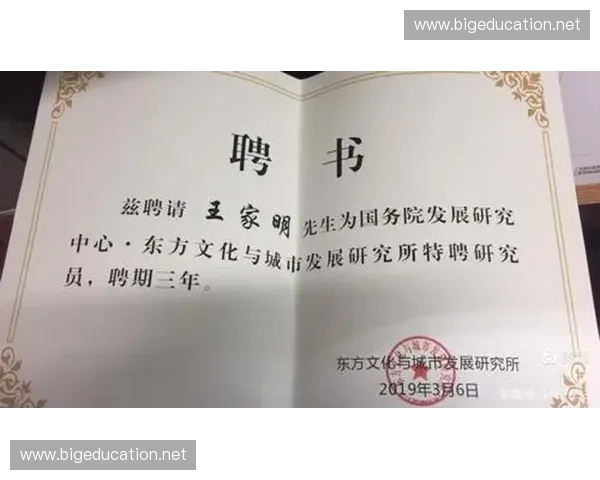 www.bigeducation.net
聘 书
兹聘请 王家明 先生为国务院发展研究
中心·东方文化与城市发展研究所特聘研究
员，聘期三年。
东方文化与城市发展研究所
2019年3月6日
www.bigeducation.net